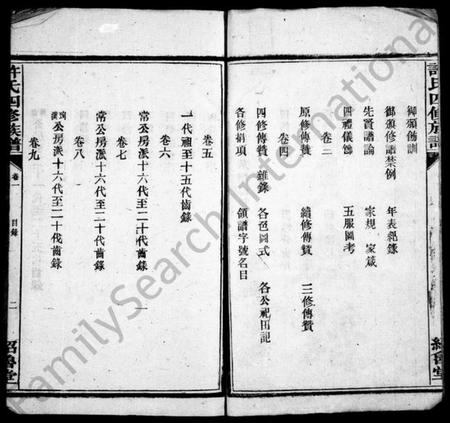 許氏四修族譜
紹魯堂
御頒飭訓
御頒修譜禁例 年表紀錄
先賢譜論 家規 家箴
四禮儀節 五服圖考
卷三
原修傳贊 續修傳贊 三修傳贊
卷四
四修傳贊 雜錄 各色圖式 各公祀田記
各修捐項 領譜字號名目
卷五
一代祖至十五代齒錄
卷六
常公房派十六代至二十代齒錄
卷七
常公房派十六代至二十代齒錄
卷八
公房派十六代至二十代齒錄
卷九
許氏四修族譜
卷一 目錄 二
紹魯堂
FamilySearch International